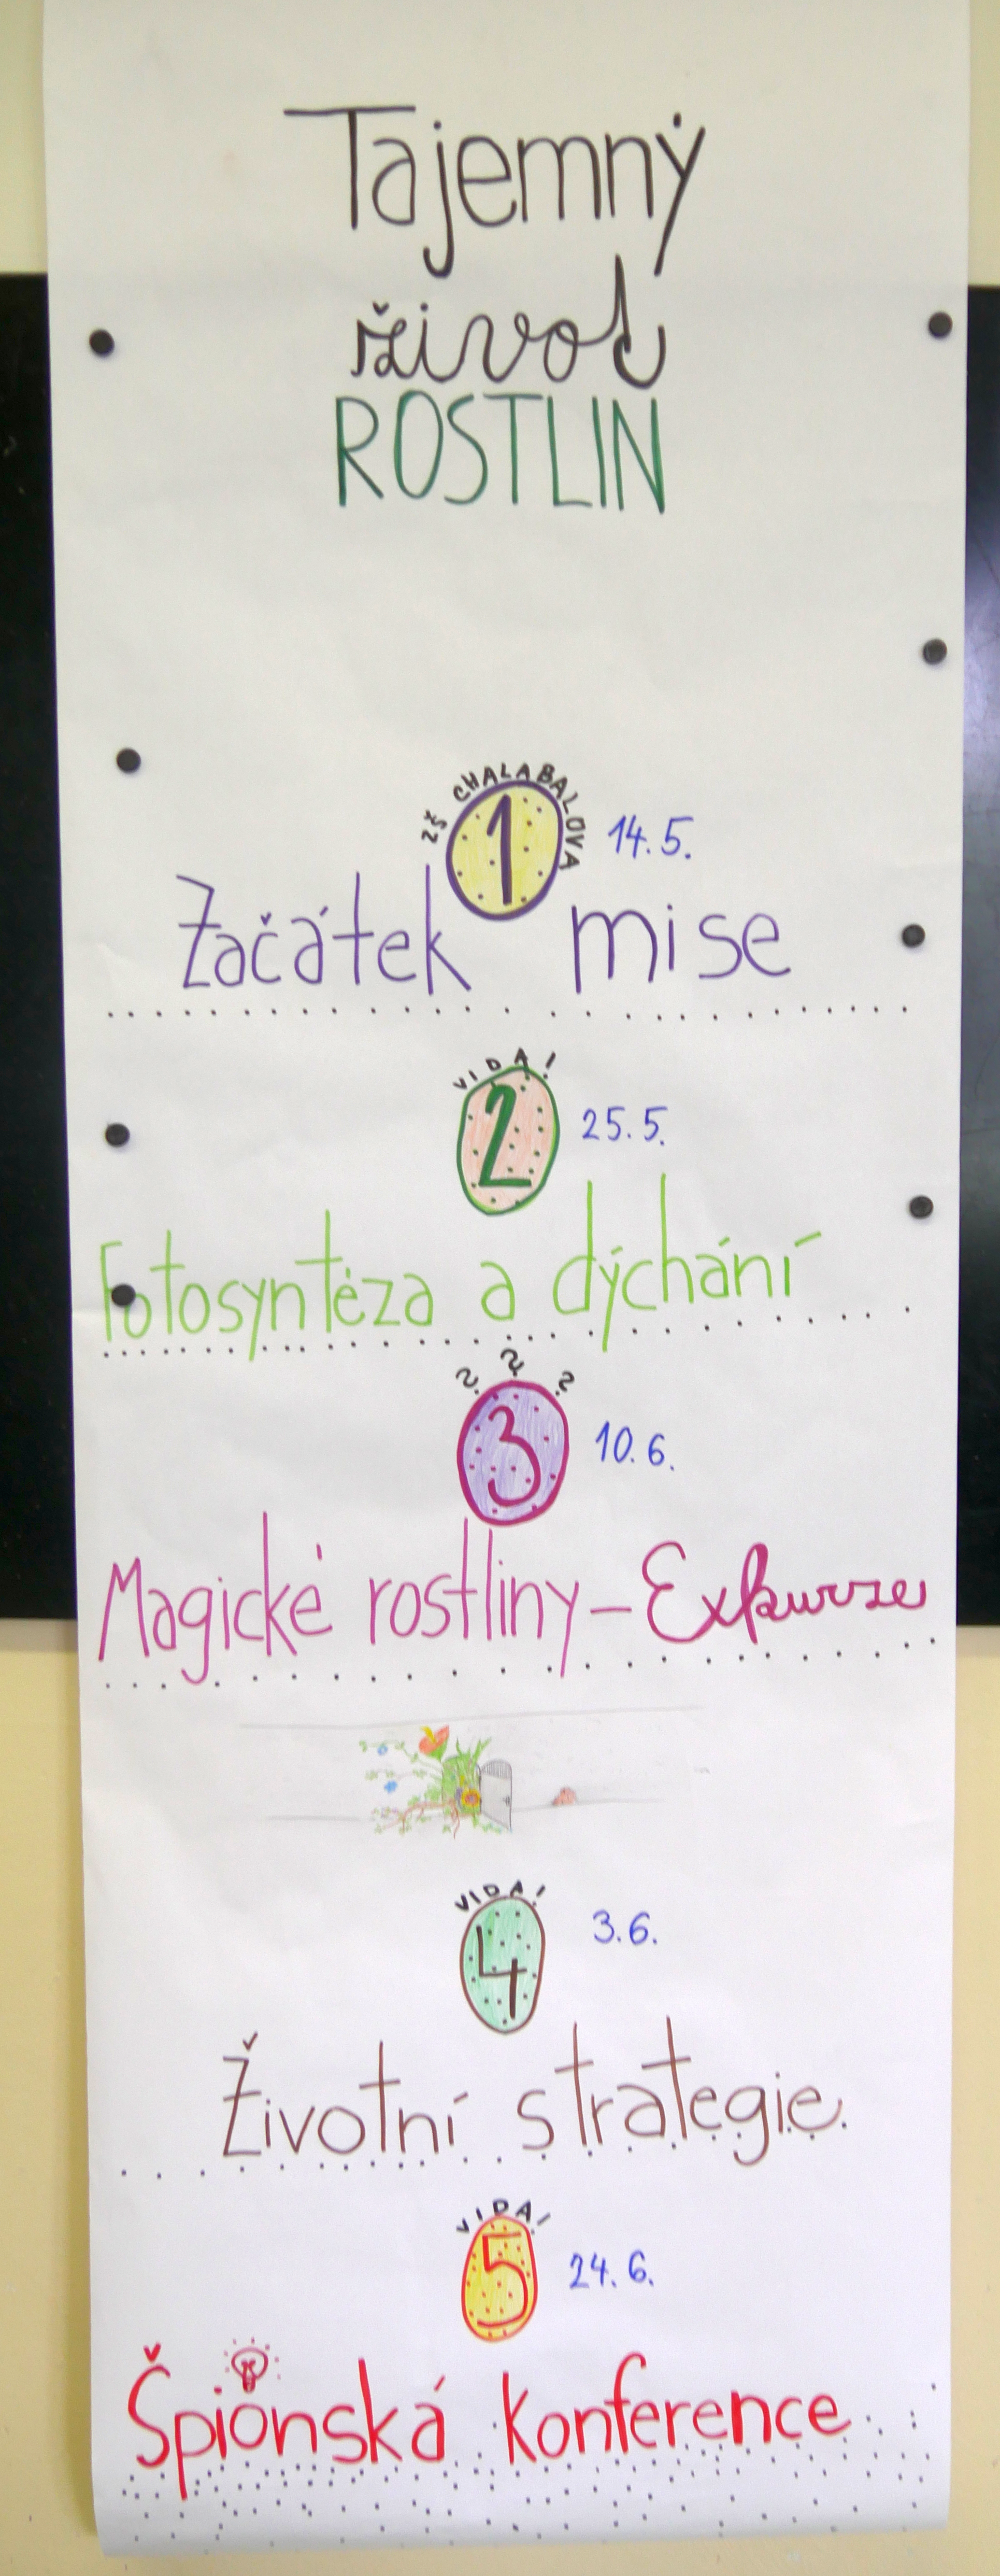 Tajemný
život
ROSTLIN
ZŠ CHALABALOVA
1 14.5.
Začátek mise
VIDA!
2 25.5.
Fotosyntéza a dýchání
? ? ?
3 10.6.
Magické rostliny – Exkurze
VIDA!
4 3.6.
Životní strategie
VIDA!
5 24.6.
Špionská konference